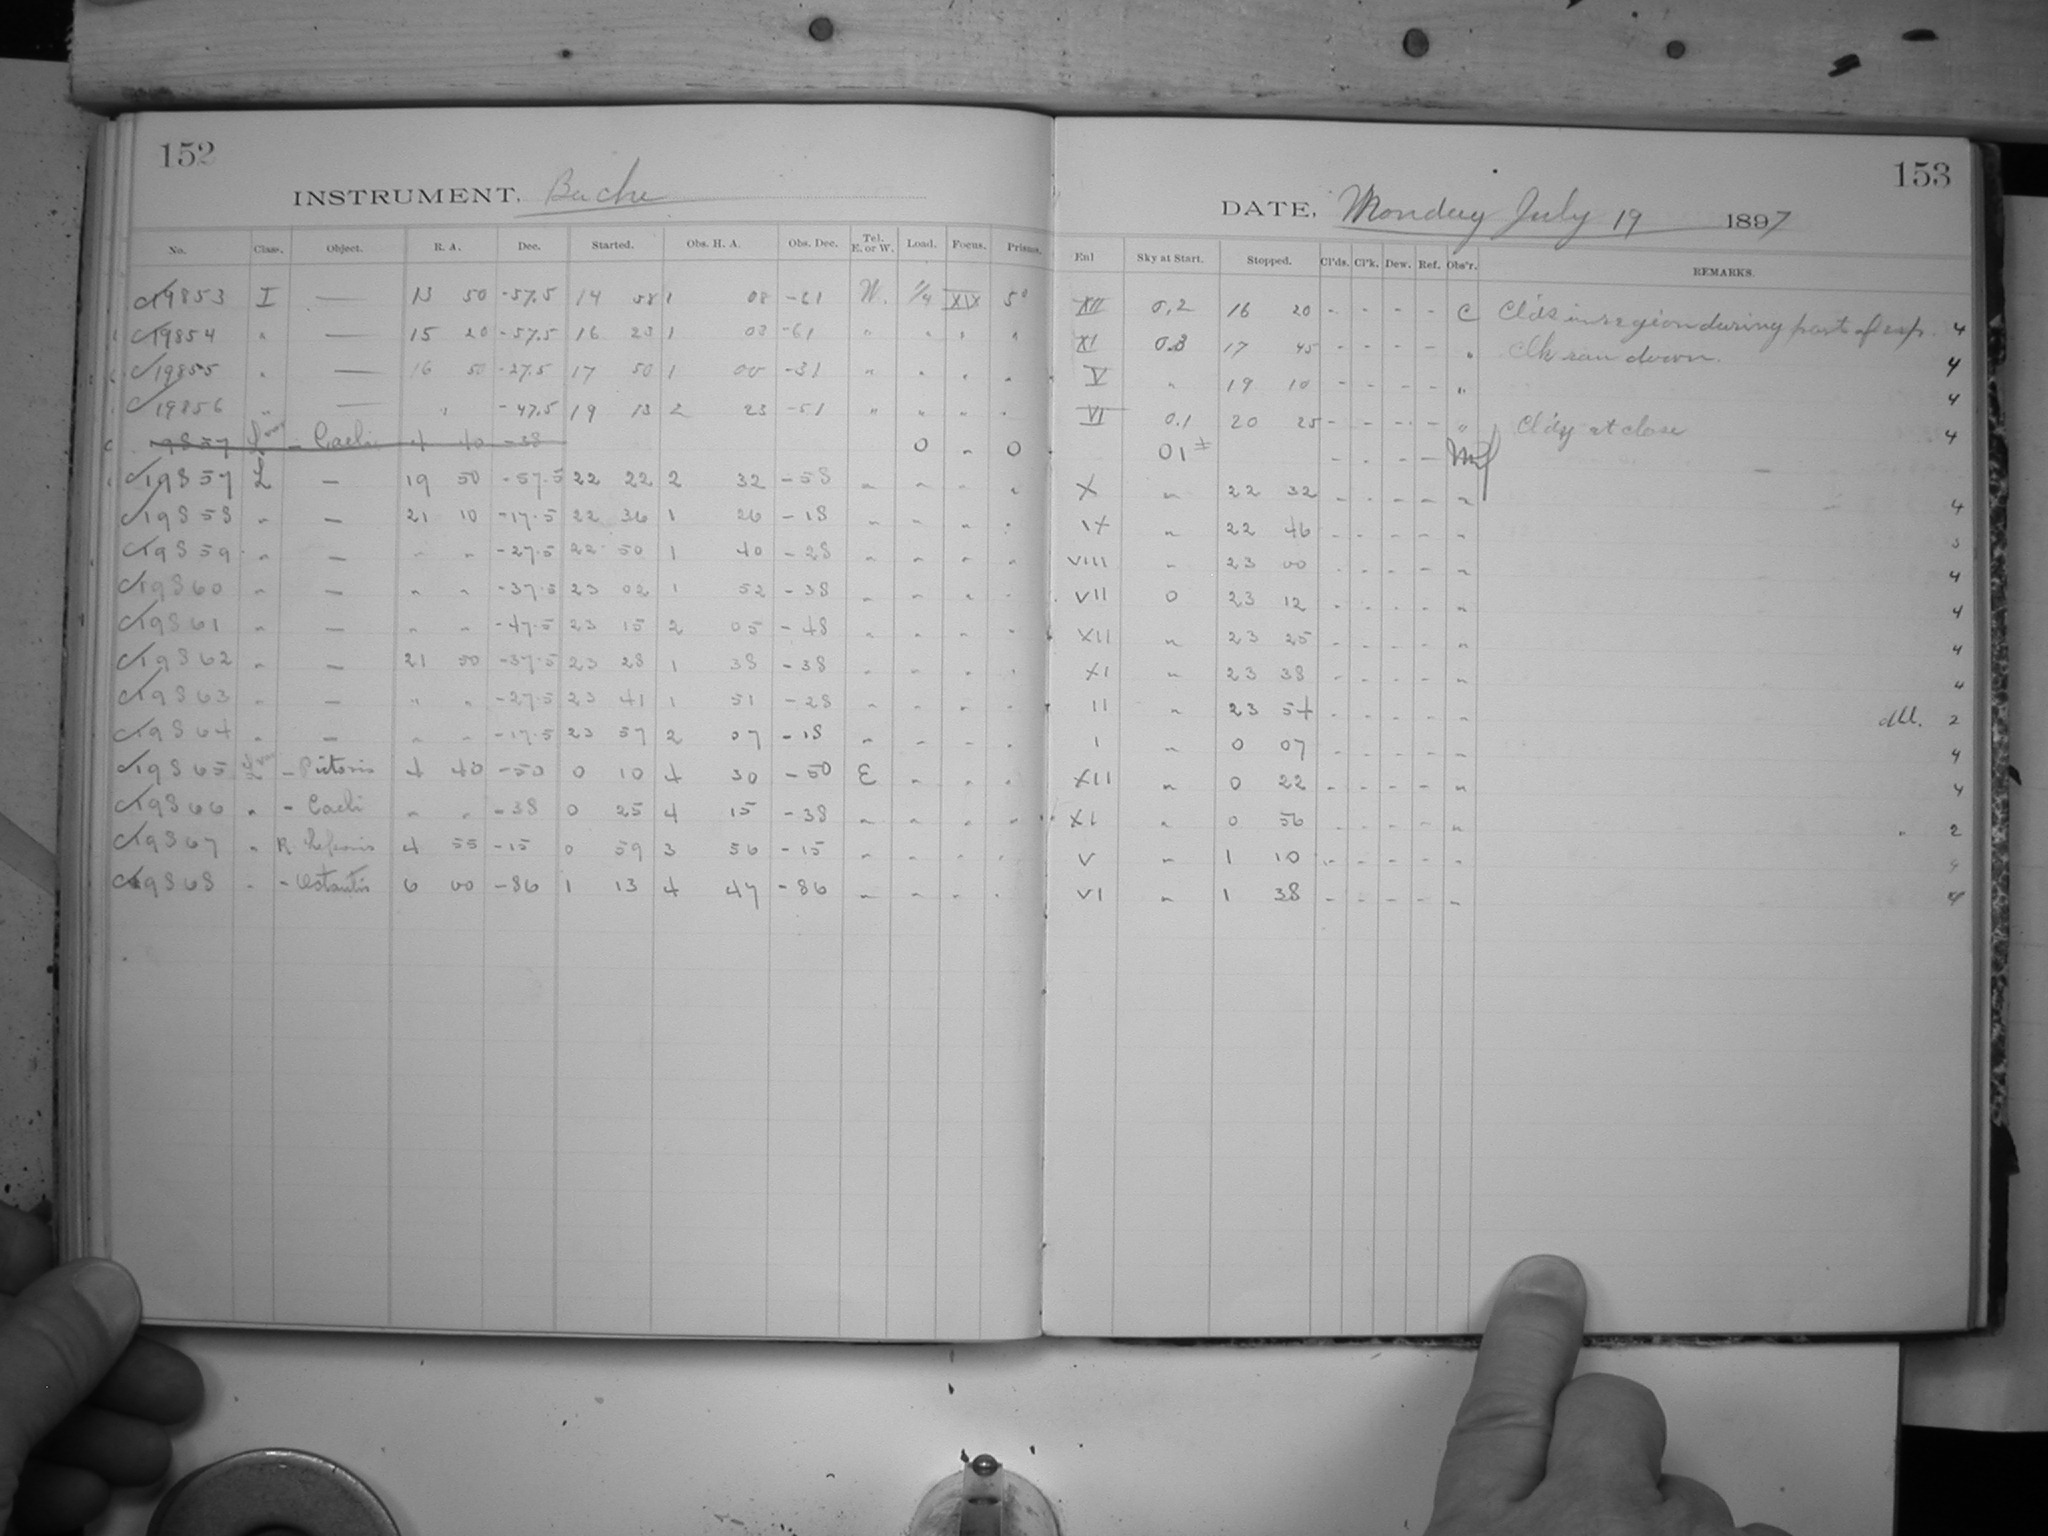 152
INSTRUMENT. Bache
No. Class. Object. R. A. Dec. Started. Obs. H. A. Obs. Dec. Tel. E. or W. Load. Focus. Prisms.
19853 I — 13 50 -57.5 14 58 1 08 -61 W. 1/4 XIX 5°
19854 " — 15 20 -57.5 16 23 1 03 -61 " " " "
19855 " — 16 50 -27.5 17 50 1 00 -31 " " " "
19856 " — " -47.5 19 13 2 23 -51 " " " "
19857 L - Caeli 4 40 -38 0 " 0
19857 L — 19 50 -57.5 22 22 2 32 -58 " " " "
19858 " — 21 10 -17.5 22 36 1 26 -18 " " " "
19859 " — " " -27.5 22 50 1 40 -28 " " " "
19860 " — " " -37.5 23 02 1 52 -38 " " " "
19861 " — " " -47.5 23 15 2 05 -48 " " " "
19862 " — 21 50 -37.5 23 28 1 38 -38 " " " "
19863 " — " " -27.5 23 41 1 51 -28 " " " "
19864 " — " " -17.5 23 57 2 07 -18 " " " "
19865 - Pictoris 4 40 -50 0 10 4 30 -50 E " " "
19866 " - Caeli " " -38 0 25 4 15 -38 " " " "
19867 " R. Leporis 4 55 -15 0 59 3 56 -15 " " " "
19868 " - Octantis 6 00 -86 1 13 4 47 -86 " " " "
153
DATE, Monday July 19 1897
Enl Sky at Start. Stopped. Cl'ds. Cl'k. Dew. Ref. Obs'r. REMARKS.
XII 0.2 16 20 - - - - C Clds in region during part of exp. 4
XI 0.3 17 45 - - - - " Clk ran down. 4
V " 19 10 - - - - " 4
VI 0.1 20 25 - - - - " Cl'dy at close 4
01± - - - -
X " 22 32 - - - - " 4
IX " 22 46 - - - - " 3
VIII " 23 00 - - - - " 4
VII 0 23 12 - - - - " 4
XII " 23 25 - - - - " 4
XI " 23 38 - - - - " 4
II " 23 54 - - - - " 2
I " 0 07 - - - - " 4
XII " 0 22 - - - - " 4
XI " 0 56 - - - - " " 2
V " 1 10 - - - - " 4
VI " 1 38 - - - - " 4